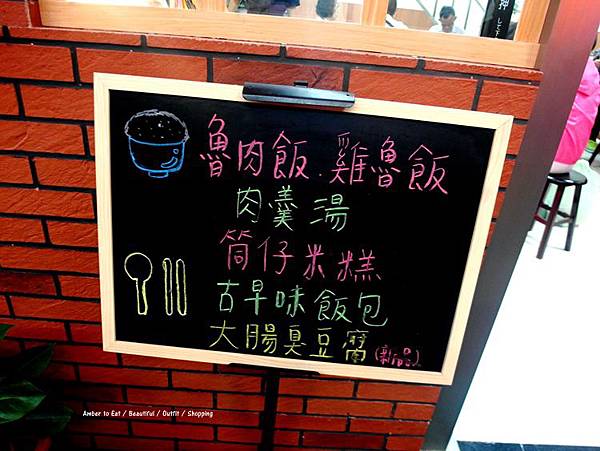 魯肉飯.雞魯飯
肉羹湯
筒仔米糕
古早味飯包
大腸臭豆腐(新品)
押
Amber to Eat / Beautiful / Outfit / Shopping